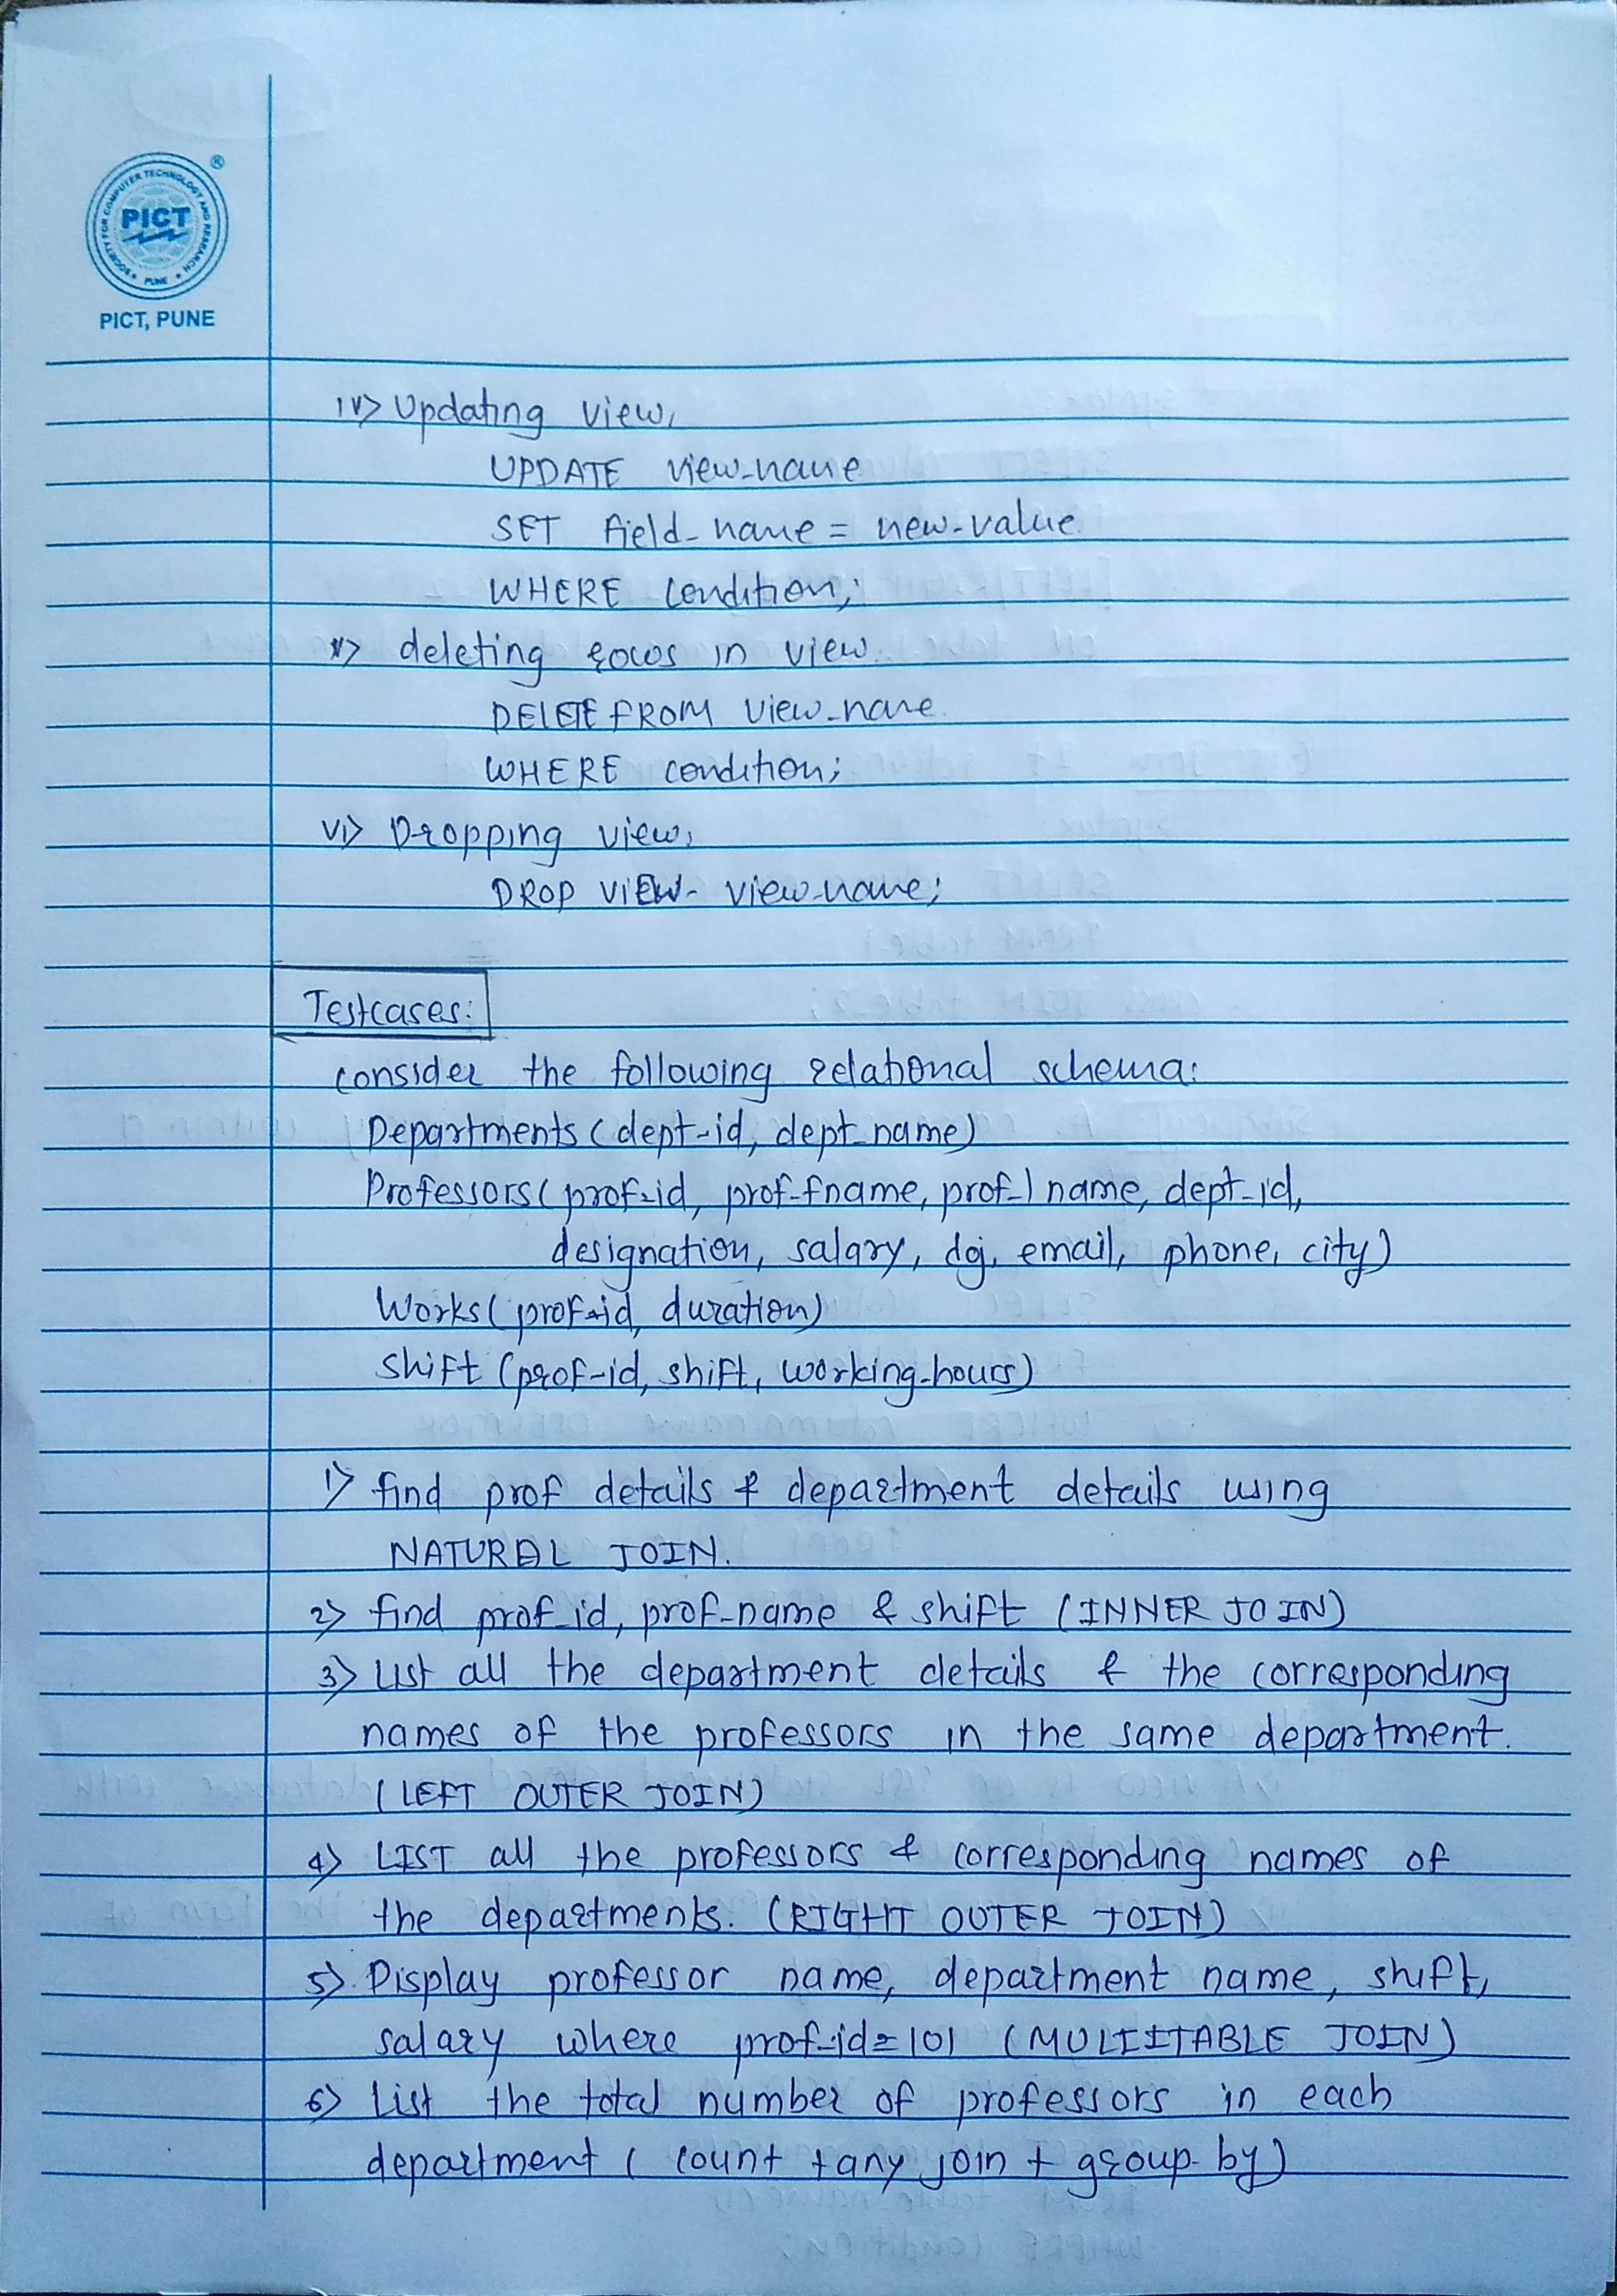 SOCIETY FOR COMPUTER TECHNOLOGY AND RESEARCH
PUNE
®
PICT
PICT, PUNE
iv> Updating view,
UPDATE view_name
SET field_name = new_value.
WHERE condition;
v> deleting rows in view.
DELETE FROM view_name.
WHERE condition;
vi> Dropping view,
DROP VIEW view_name;
Testcases:
consider the following relational schema:
Departments (dept_id, dept_name)
Professors (prof_id, prof_fname, prof_lname, dept_id,
designation, salary, doj, email, phone, city)
Works (prof_id, duration)
Shift (prof_id, shift, working_hours)
1> find prof details & department details using
NATURAL JOIN.
2> find prof_id, prof_name & shift (INNER JOIN)
3> List all the department details & the corresponding
names of the professors in the same department.
(LEFT OUTER JOIN)
4> LIST all the professors & corresponding names of
the departments. (RIGHT OUTER JOIN)
5> Display professor name, department name, shift,
salary where prof_id=101 (MULTITABLE JOIN)
6> List the total number of professors in each
department ( count + any join + group by)